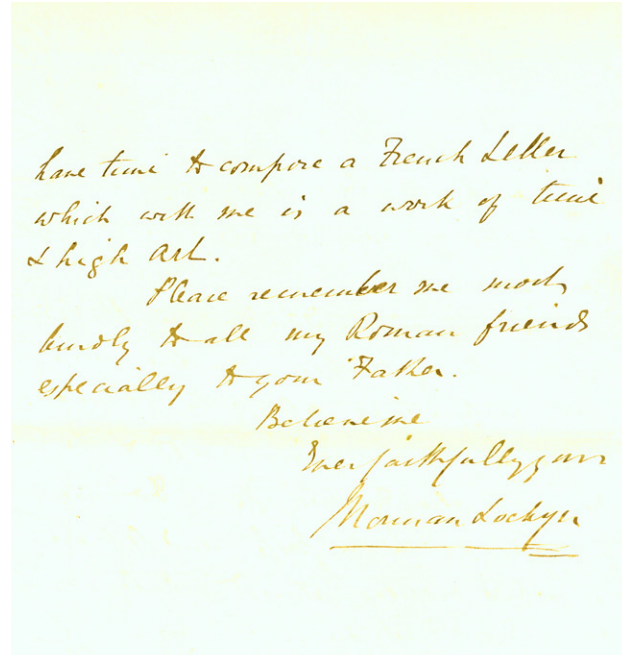 have time to compose a French Letter
which with me is a work of time
& high art.
Please remember me most
kindly to all my Roman friends
especially to your Father.
Believe me
Ever faithfully yours
Norman Lockyer